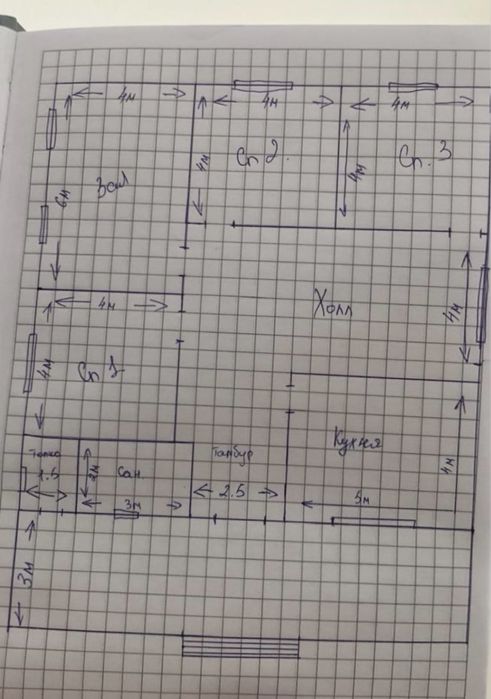 4м 4м 4м
Зал 6м
Сп 2. 4м
Сп. 3 4м
Холл 4м
4м
Сп 1 4м
Кухня 4м
5м
Топка 1.5
2м Сан
3м
Тамбур
2.5
3м